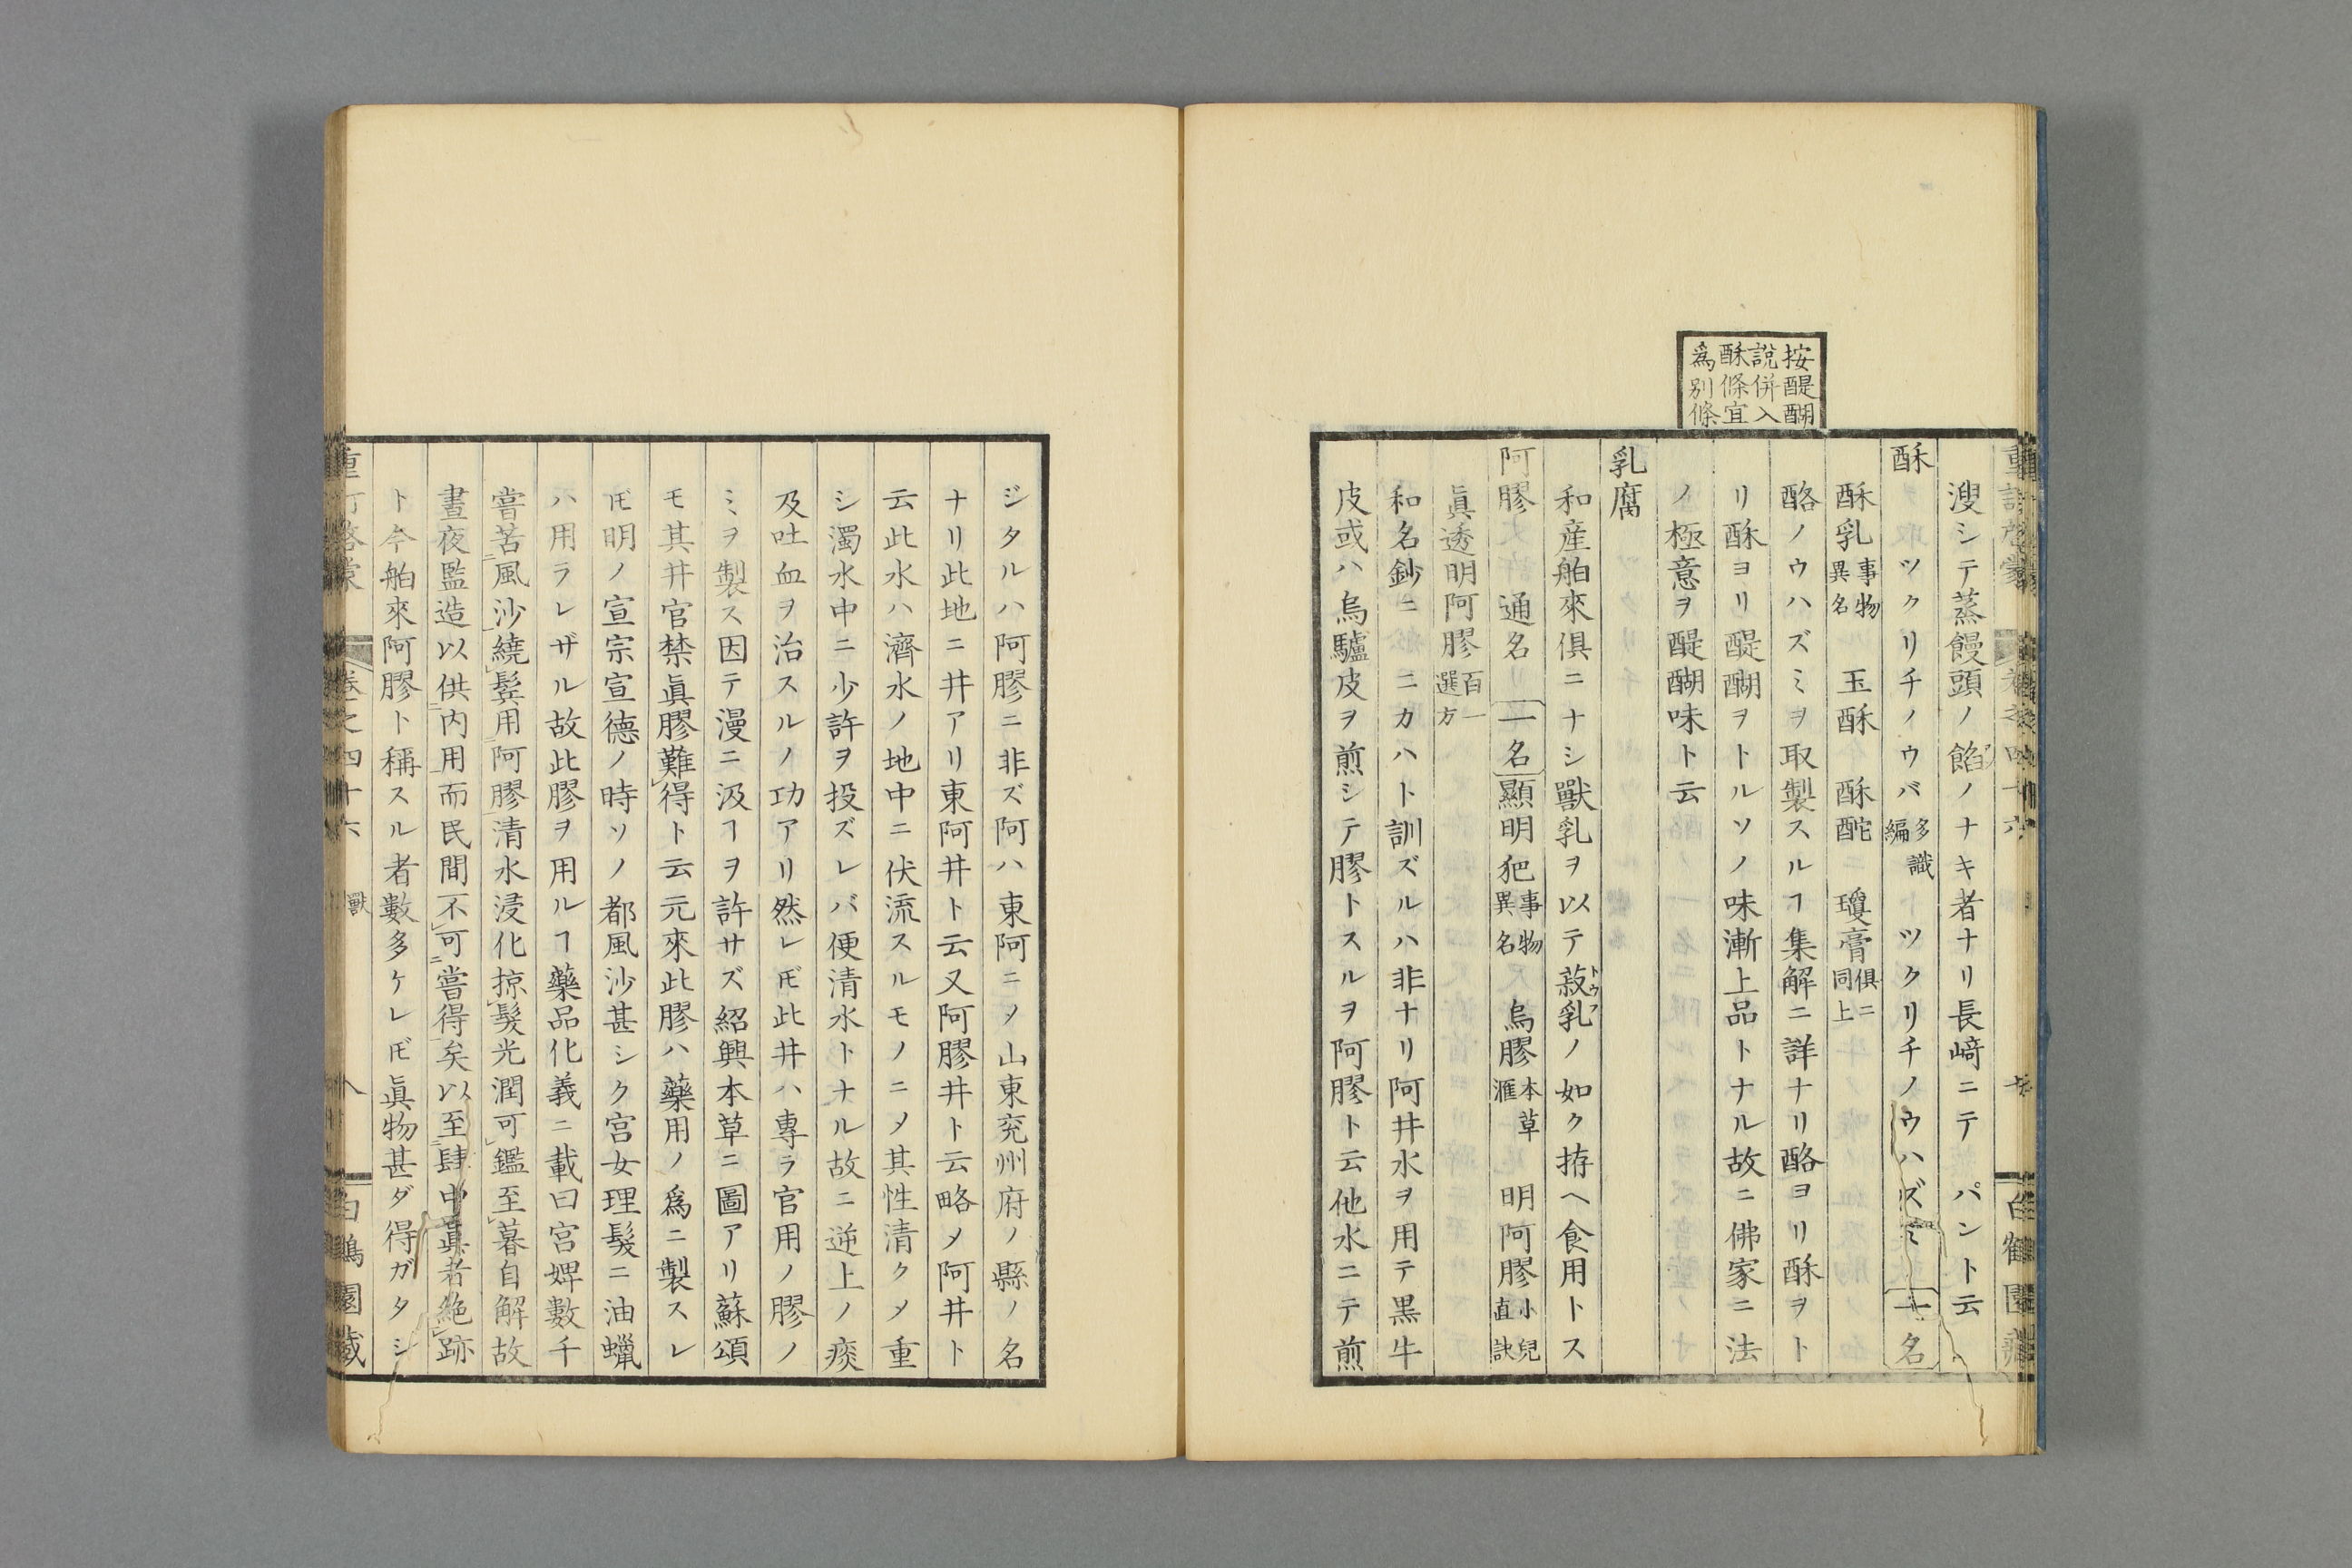 按醍醐
說併入
酥條宜
爲別條
溲シテ蒸饅頭ノ餡ノナキ者ナリ長﨑ニテパント云
酥　ツクリチノウバ多識編　ツクリチノウハズミ　一名
酥乳事物異名　玉酥　酥酡　瓊膏俱ニ同上
酪ノウハズミヲ取製スルヿ集解ニ詳ナリ酪ヨリ酥ヲト
リ酥ヨリ醍醐ヲトルソノ味漸上品トナル故ニ佛家ニ法
ノ極意ヲ醍醐味ト云
乳腐
和産舶來俱ニナシ獸乳ヲ以テ菽乳トウフノ如ク拵ヘ食用トス
阿膠　通名　一名顯明犯事物異名　烏膠本草滙　明阿膠小兒直訣
眞透明阿膠百一選方
和名鈔ニニカハト訓ズルハ非ナリ阿井水ヲ用テ黒牛
皮或ハ烏驢皮ヲ煎シテ膠トスルヲ阿膠ト云他水ニテ煎
ジタルハ阿膠ニ非ズ阿ハ東阿ニメ山東兖州府ノ縣ノ名
ナリ此地ニ井アリ東阿井ト云又阿膠井ト云略メ阿井ト
云此水ハ濟水ノ地中ニ伏流スルモノニメ其性清クメ重
シ濁水中ニ少許ヲ投ズレバ便清水トナル故ニ逆上ノ痰
及吐血ヲ治スルノ功アリ然レ𪜈此井ハ專ラ官用ノ膠ノ
ミヲ製ス因テ漫ニ汲ヿヲ許サズ紹興本草ニ圖アリ蘇頌
モ其井官禁眞膠難得ト云元來此膠ハ藥用ノ爲ニ製スレ
𪜈明ノ宣宗宣德ノ時ソノ都風沙甚シク宮女理髮ニ油蠟
ハ用ラレザル故此膠ヲ用ルヿ藥品化義ニ載曰宮婢數千
嘗苦風沙繞鬂用阿膠清水浸化掠髮光潤可鑑至暮自解故
晝夜監造以供内用而民間不可嘗得矣以至肆中眞者絶跡
ト今舶來阿膠ト稱スル者數多ケレ𪜈眞物甚ダ得ガタシ
卷之四十六　獸　八　白鶴園藏